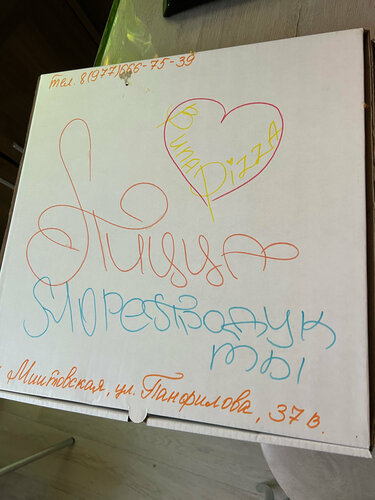 тел. 8(977)666-75-39
Pizza
Пицца
морепродук
ты
Миитовская, ул. Панфилова, 37в.